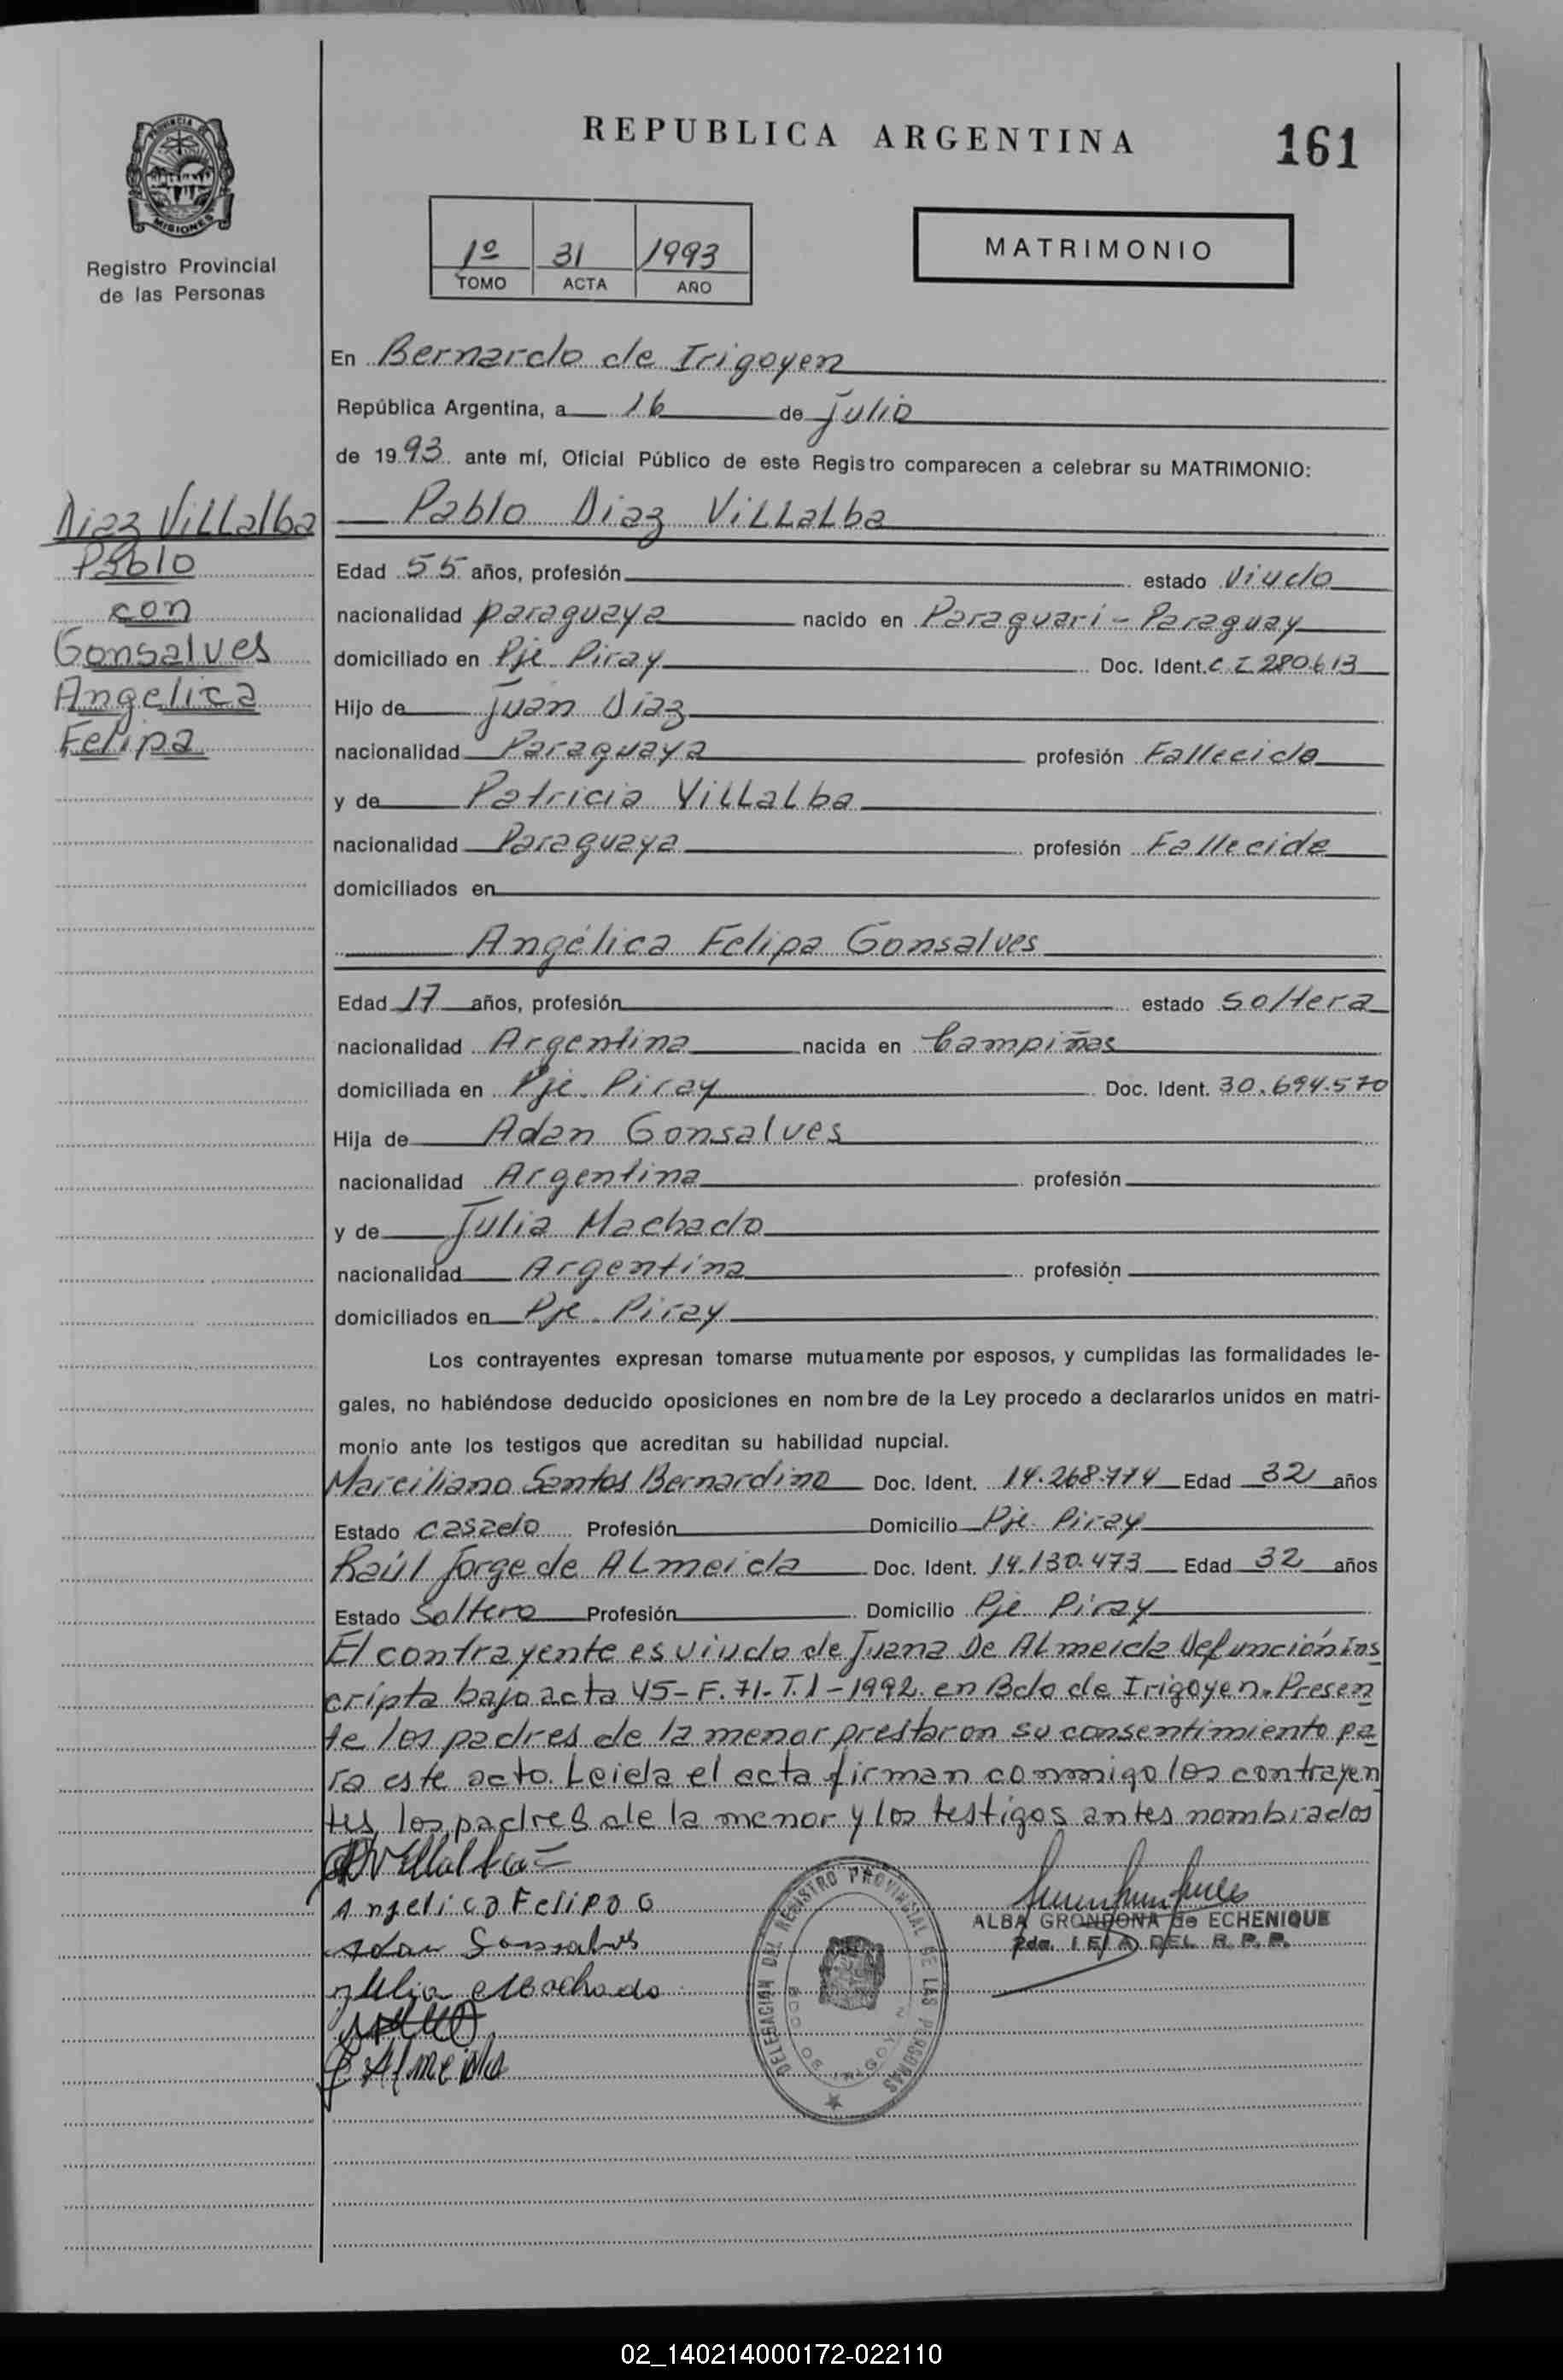 REPUBLICA ARGENTINA
161
PROVINCIA DE
MISIONES
Registro Provincial
de las Personas
1º 31 1993
TOMO ACTA AÑO
MATRIMONIO
En Bernardo de Irigoyen
República Argentina, a 16 de Julio
de 1993 ante mí, Oficial Público de este Registro comparecen a celebrar su MATRIMONIO:
Diaz Villalba
Pablo
con
Gonsalves
Angelica
Felipa
Pablo Diaz Villalba
Edad 55 años, profesión estado Viudo
nacionalidad paraguaya nacido en Paraguari - Paraguay
domiciliado en Pje Piray Doc. Ident. C I 280.613
Hijo de Juan Diaz
nacionalidad Paraguaya profesión Fallecido
y de Patricia Villalba
nacionalidad Paraguaya profesión Fallecida
domiciliados en
Angélica Felipa Gonsalves
Edad 17 años, profesión estado soltera
nacionalidad Argentina nacida en Campiñas
domiciliada en Pje. Piray Doc. Ident. 30.694.570
Hija de Adan Gonsalves
nacionalidad Argentina profesión
y de Julia Machado
nacionalidad Argentina profesión
domiciliados en Pje. Piray
Los contrayentes expresan tomarse mutuamente por esposos, y cumplidas las formalidades le-
gales, no habiéndose deducido oposiciones en nombre de la Ley procedo a declararlos unidos en matri-
monio ante los testigos que acreditan su habilidad nupcial.
Marciliano Santos Bernardino Doc. Ident. 14.268.774 Edad 32 años
Estado casado Profesión Domicilio Pje. Piray
Raúl Jorge de Almeida Doc. Ident. 14.130.473 Edad 32 años
Estado Soltero Profesión Domicilio Pje Piray
El contrayente es viudo de Juana De Almeida Defunción Ins
cripta bajo acta 45-F.71-T.1-1992 en Bdo de Irigoyen. Presen
te los padres de la menor prestaron su consentimiento pa
ra este acto. Leida el acta firman conmigo los contrayen
tes, los padres de la menor y los testigos antes nombrados
Villalba
Angelica Felipa G
Adan Gonsalves
Julia Machado
Almeida
DELEGACION DEL REGISTRO PROVINCIAL DE LAS PERSONAS
BDO DE IRIGOYEN
ALBA GRONDONA de ECHENIQUE
DEL R. P. P.
02_140214000172-022110